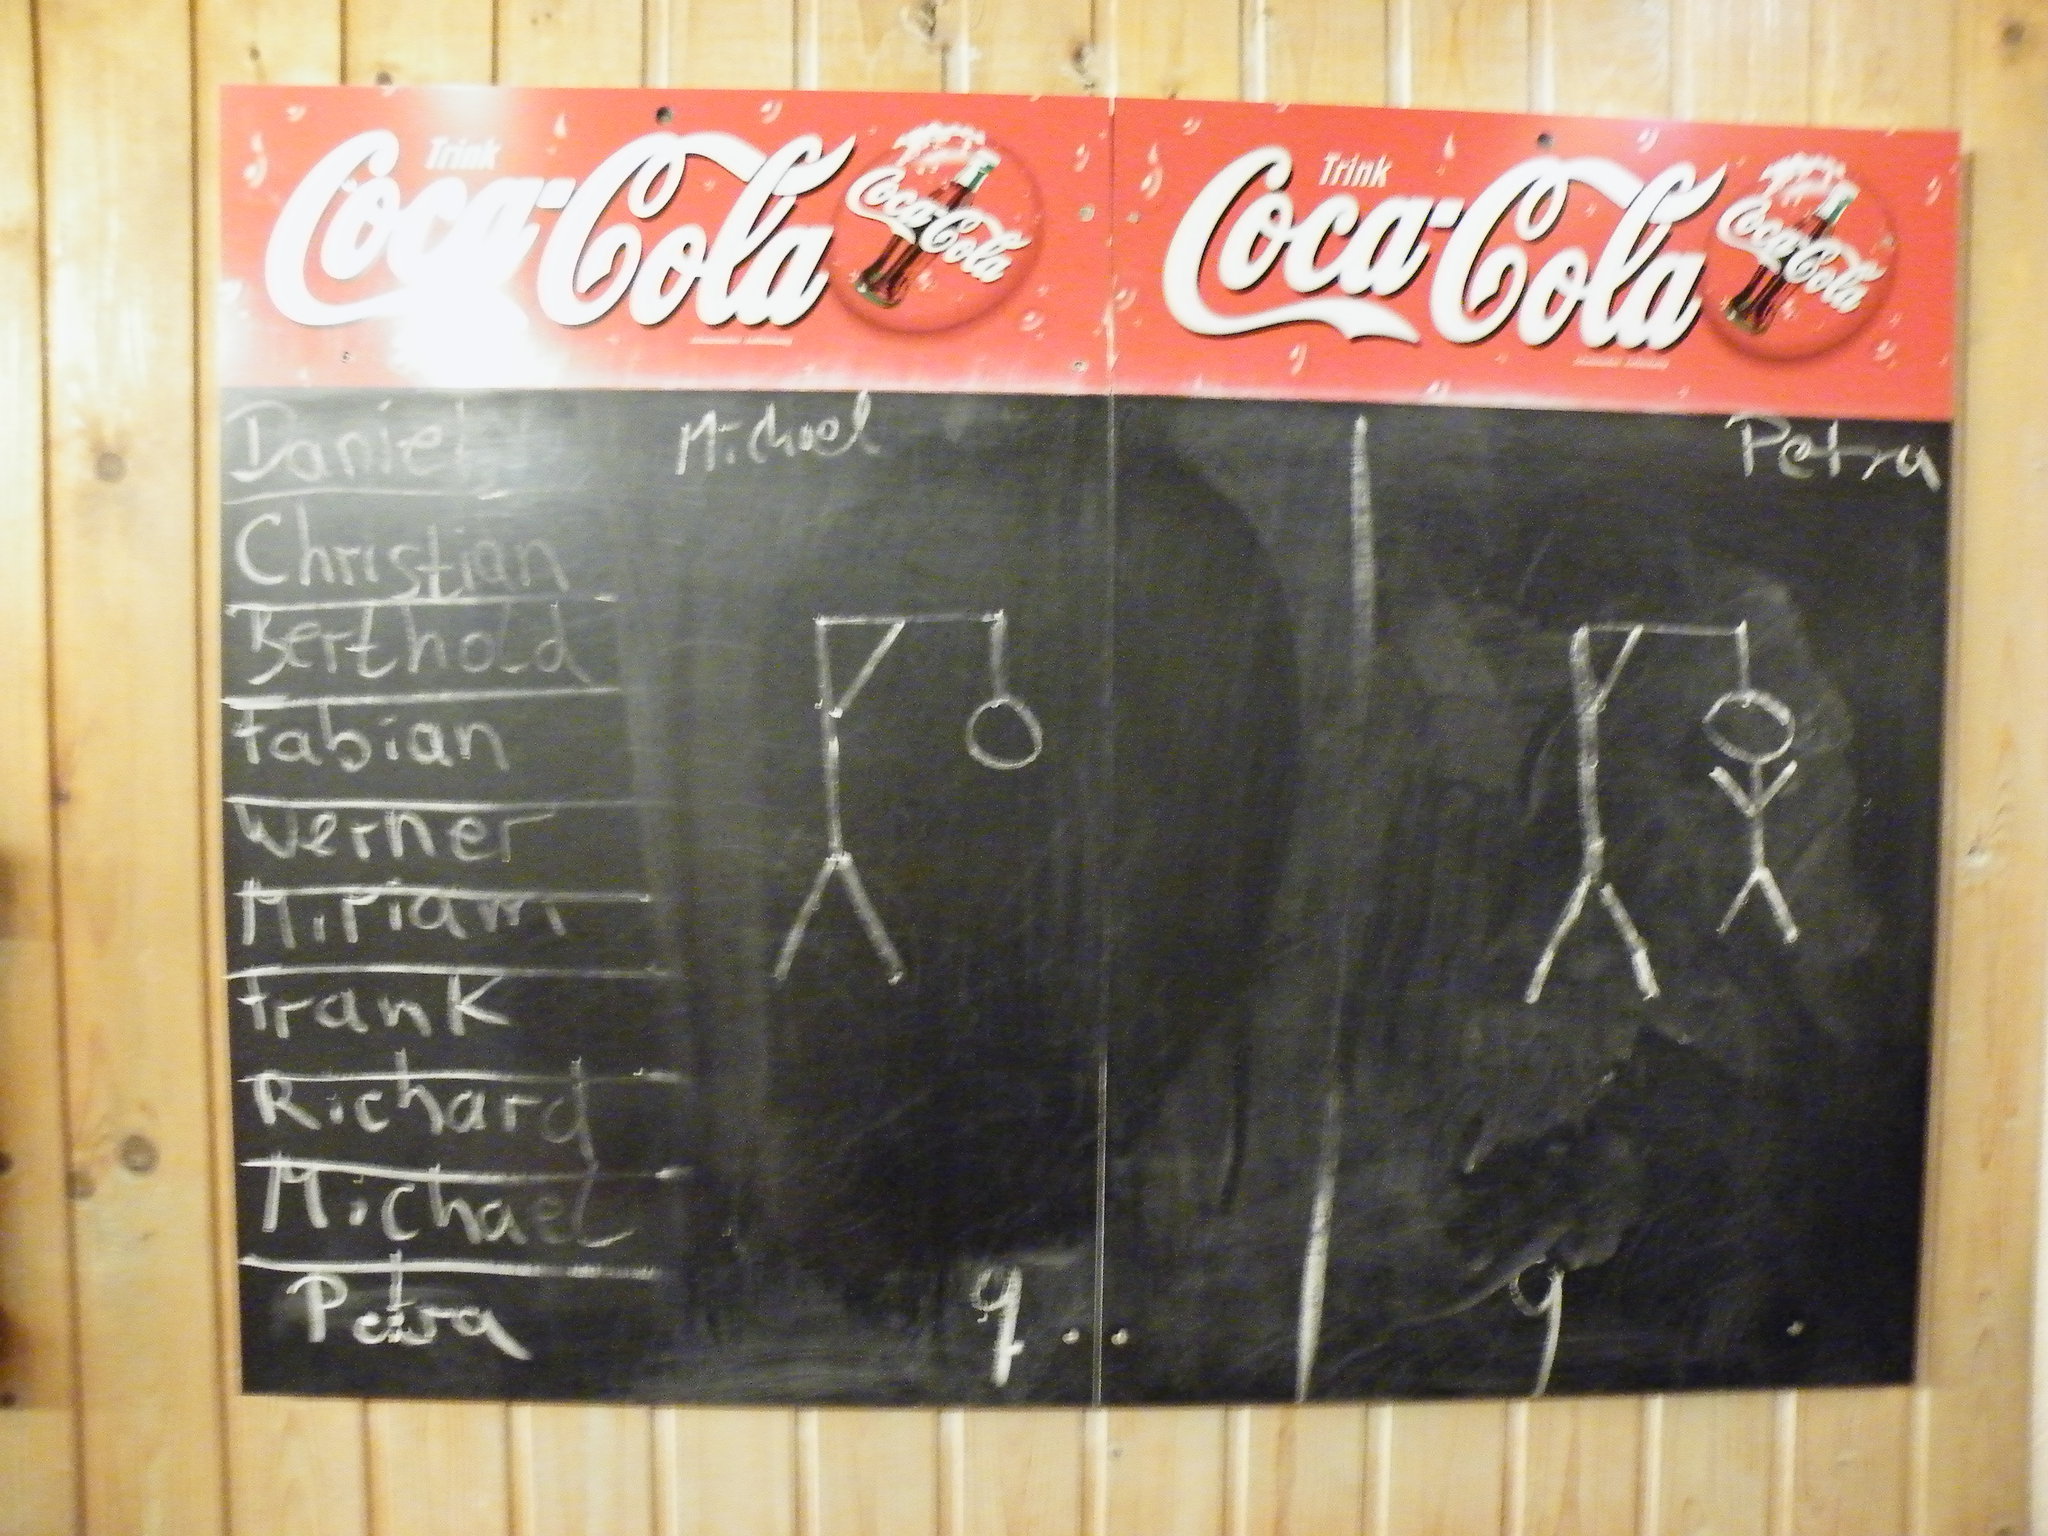 Trink
Coca-Cola
Coca-Cola
Trink
Coca-Cola
Coca-Cola
Daniel
Christian
Berthold
Fabian
Werner
Miriam
Frank
Richard
Michael
Petra
Michael
9
Petra
9